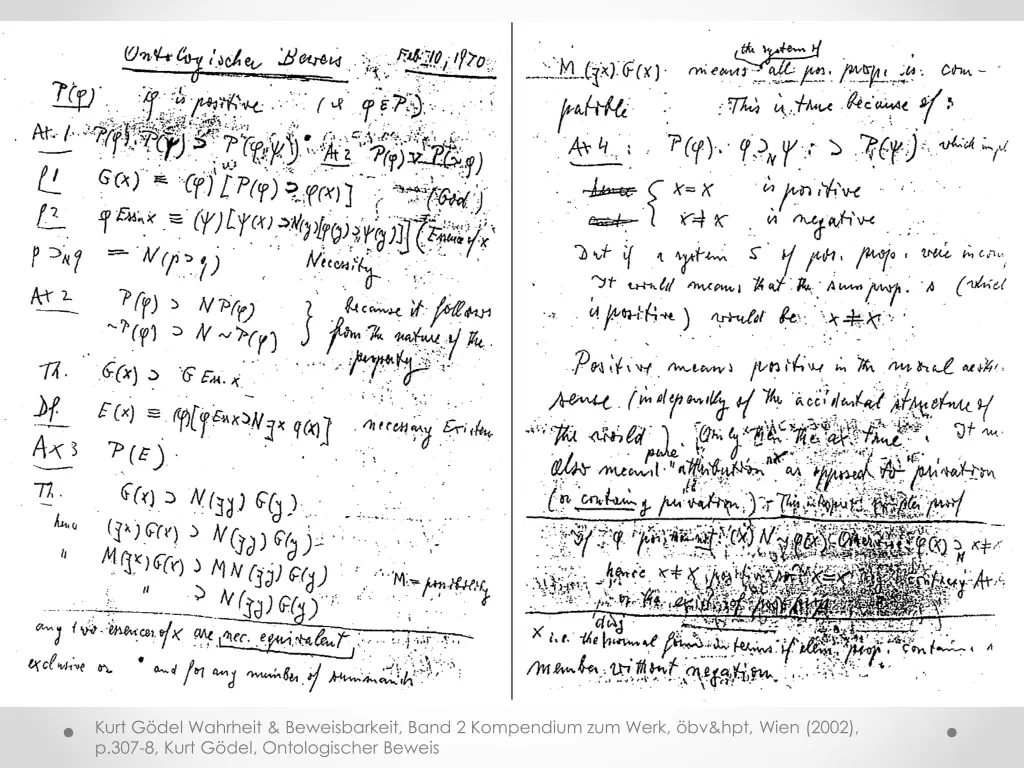 Ontologischer Beweis Feb. 10, 1970
P(φ) φ is positive (i.e. φ ∈ P.)
At. 1 P(φ).P(ψ) ⊃ P(φ.ψ)• At 2 P(φ) ∨ P(∼φ)
P1 G(x) ≡ (φ)[P(φ) ⊃ φ(x)] (God)
P2 φ Ess.x ≡ (ψ)[ψ(x) ⊃ N(y)[φ(y) ⊃ ψ(y)]] (Essence of x
p ⊃N q = N(p ⊃ q) Necessity
At 2 P(φ) ⊃ N P(φ) } because it follows
∼P(φ) ⊃ N ∼P(φ) } from the nature of the
property
Th. G(x) ⊃ G Ess. x
Df. E(x) ≡ (φ)[φ Ess x ⊃ N ∃x φ(x)] necessary Existen
Ax 3 P(E)
Th. G(x) ⊃ N(∃y) G(y)
hence (∃x) G(x) ⊃ N(∃y) G(y)
" M(∃x) G(x) ⊃ M N (∃y) G(y)
" ⊃ N(∃y) G(y) M = possibility
any two essences of x are nec. equivalent
exclusive or • and for any number of summands
the system of
M (∃x) G(x) means all pos. prop. is com-
patible This is true because of :
At 4 : P(φ). φ ⊃N ψ : ⊃ P(ψ) which impl
hence { x=x is positive
and { x≠x is negative
But if a system S of pos. prop. were incom
It would mean that the sum prop. s (which
is positive) would be x≠x
Positive means positive in the moral aesthe.
sense (independly of the accidental structure of
the world). Only then the ax true. It m.
also mean pure "attribution" as opposed to "privation
(or containing privation.)
If φ x≠x
hence x≠x positive x=x contrary At.
x i.e. the normal form in terms of elem. prop. contains a
member without negation
Kurt Gödel Wahrheit & Beweisbarkeit, Band 2 Kompendium zum Werk, öbv&hpt, Wien (2002),
p.307-8, Kurt Gödel, Ontologischer Beweis